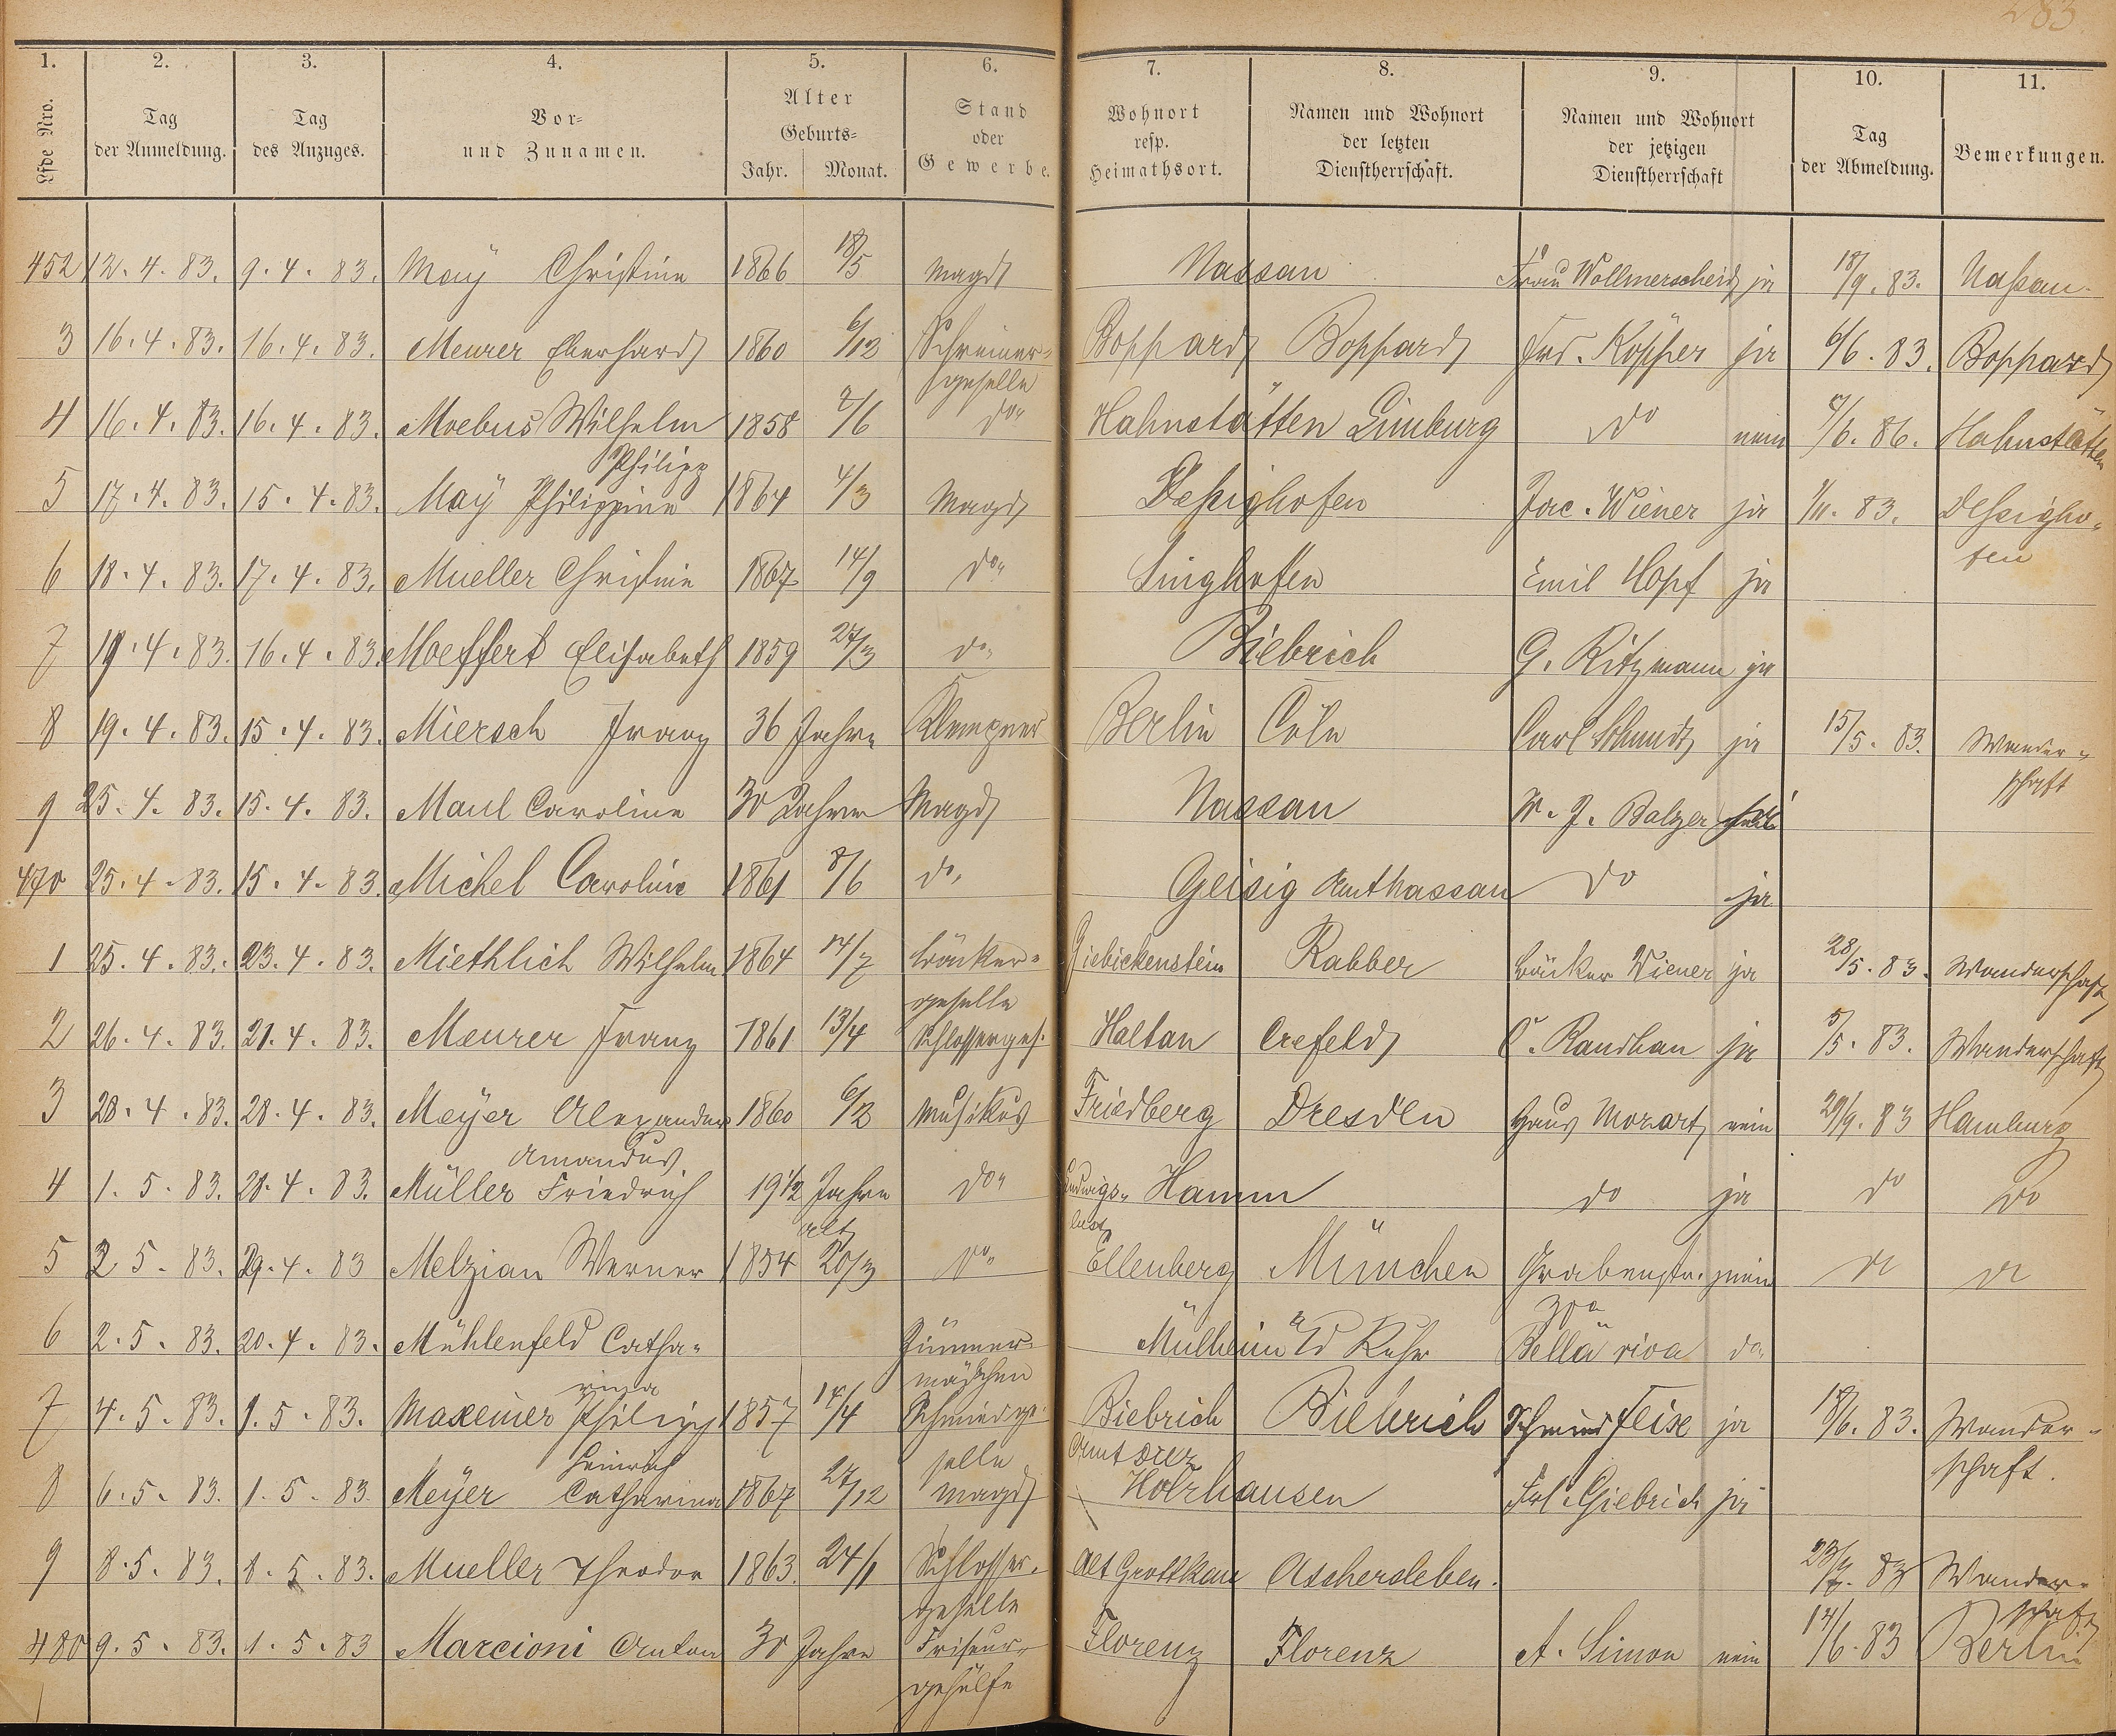 283
1. 2. 3. 4. 5. 6. 7. 8. 9. 10. 11.
Lfde Nro. Tag der Anmeldung. Tag des Anzuges. Vor- und Zunamen. Alter Geburts- Jahr. Monat. Stand oder Gewerbe. Wohnort resp. Heimathsort. Namen und Wohnort der letzten Dienstherrschaft. Namen und Wohnort der jetzigen Dienstherrschaft Tag der Abmeldung. Bemerkungen.
452 12. 4. 83. 9. 4. 83. May Christine 1866 18/5 Magd Nassau Frau Wollmerscheid ja 18/9. 83. Naßau.
3 16. 4. 83. 16. 4. 83. Meurer Eberhard 1860 6/12 Schreiner- Boppard Boppard Frd. Köpper ja 6/6. 83. Boppard
geselle
4 16. 4. 83. 16. 4. 83. Moebus Wilhelm 1858 2/6 do Hahnstätten Limburg do nein 8/6. 86. Hahnstätten
Philipp
5 17. 4. 83. 15. 4. 83. May Philippine 1864 4/3 Magd Deßighofen Jac. Wiener ja 1/11. 83. Deßigho-
fen
6 18. 4. 83. 17. 4. 83. Mueller Christine 1867 14/9 do Singhofen Emil Hopf ja
7 19. 4. 83. 16. 4. 83. Moeffert Elisabeth 1859 27/3 do Biebrich G. Ritzmann ja
8 19. 4. 83. 15. 4. 83. Miersch Franz 36 Jahre Klempner Berlin Cöln Carl Schmidt ja 15/5. 83. Wander-
schaft
9 25. 4. 83. 15. 4. 83. Maul Caroline 30 Jahre Magd Nassau W. J. Balzer
470 25. 4. 83. 15. 4. 83. Michel Caroline 1861 8/6 do Geisig Amt Nassau do ja
1 25. 4. 83. 23. 4. 83. Miethlich Wilhelm 1864 14/7 Bäcker- Giebickenstein Rabber Bäcker Wiener ja 28/5. 83. Wanderschaft
geselle
2 26. 4. 83. 21. 4. 83. Meurer Franz 1861 13/4 Schlosserges. Haltan Crefeld C. Randhan ja 5/5. 83. Wanderschaft
3 28. 4. 83. 28. 4. 83. Meyer Alexander 1860 6/2 Musikus Friedberg Dresden Haus Mozart nein 29/9. 83 Hamburg
Amandus
4 1. 5. 83. 28. 4. 83. Müller Friedrich 19 1/2 Jahre do Ludwigs- Hamm do ja do do
alt lust
5 2 5. 83. 29. 4. 83 Melzian Werner 1854 20/3 do Ellenberg München Grabenstr. nein do do
30a
6 2. 5. 83. 20. 4. 83. Mühlenfeld Catha- Zimmer- Mülheim a/d Ruhr Bella riva do
rina mädchen
7 4. 5. 83. 1. 5. 83. Maxeiner Philipp 1857 14/4 Schmiedge- Biebrich Biebrich Schmied Feise ja 18/6. 83. Wander-
Heinrich selle Amt Diez schaft.
8 6. 5. 83. 1. 5. 83. Meyer Catharina 1867 27/12 Magd Holzhausen Frl. Giebrich ja
9 8. 5. 83. 8. 5. 83. Mueller Theodor 1863. 24/1 Schlosser- Alt Grottkau Aschersleben. 23/7. 83 Wander-
geselle schaft
480 9. 5. 83. 1. 5. 83 Marcioni Anton 30 Jahre Friseur- Florenz Florenz A. Simon nein 14/6. 83 Berlin
gehülfe